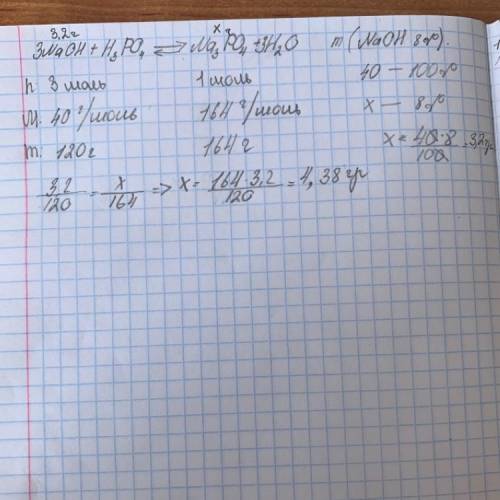 3,2г х г
3NaOH + H₃PO₄ ⇌ Na₃PO₄ + 3H₂O m (NaOH 8%).
n: 3 моль 1 моль 40 — 100%
M: 40 г/моль 164 г/моль х — 8%
m: 120 г 164 г х = 40·8/100 = 3,2гр
3,2/120 = х/164 => х = 164·3,2/120 = 4,38 гр